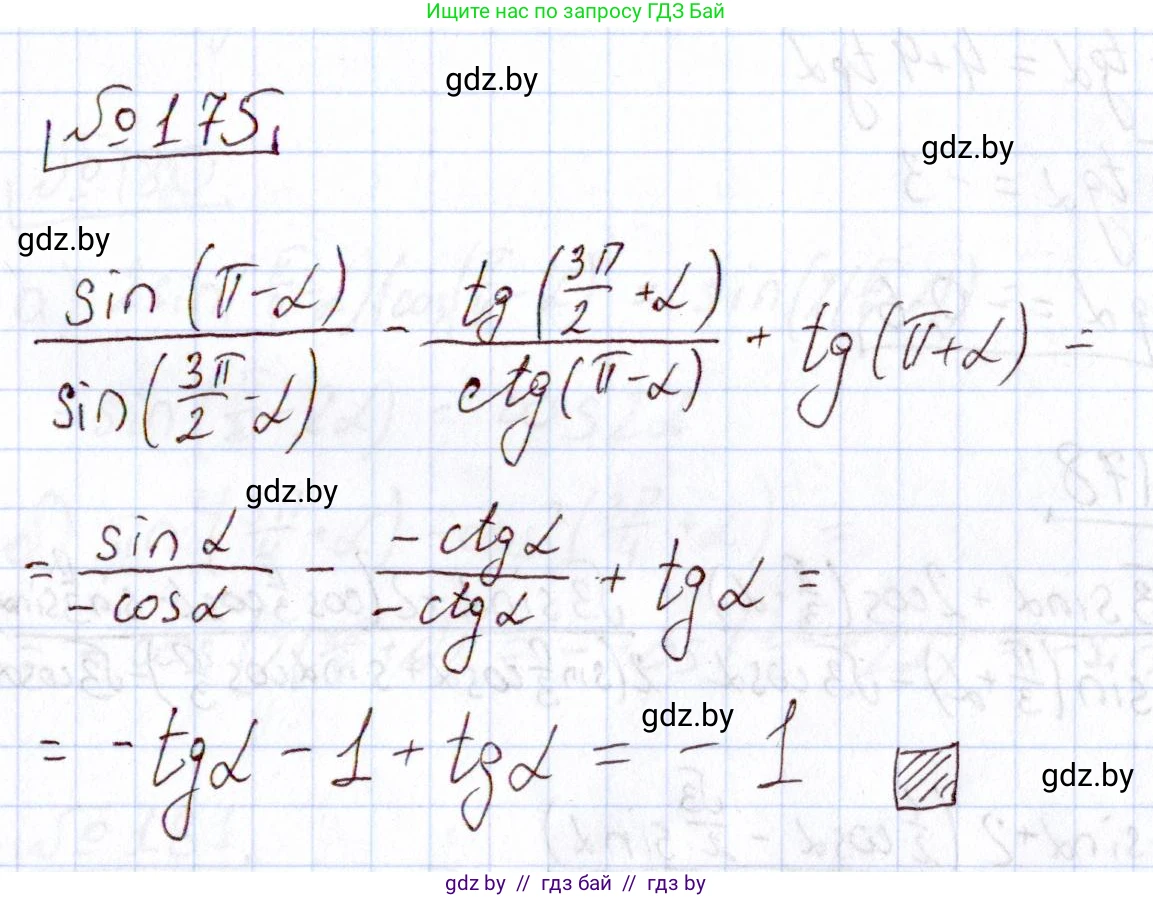 Ищите нас по запросу ГДЗ Бай
gdz.by
№ 175
gdz.by
gdz.by
sin(π-α)/sin(3π/2-α) - tg(3π/2+α)/ctg(π-α) + tg(π+α) =
gdz.by
= sin α/-cos α - -ctg α/-ctg α + tg α =
gdz.by
= -tg α - 1 + tg α = -1
gdz.by
gdz by // гдз бай // гдз by